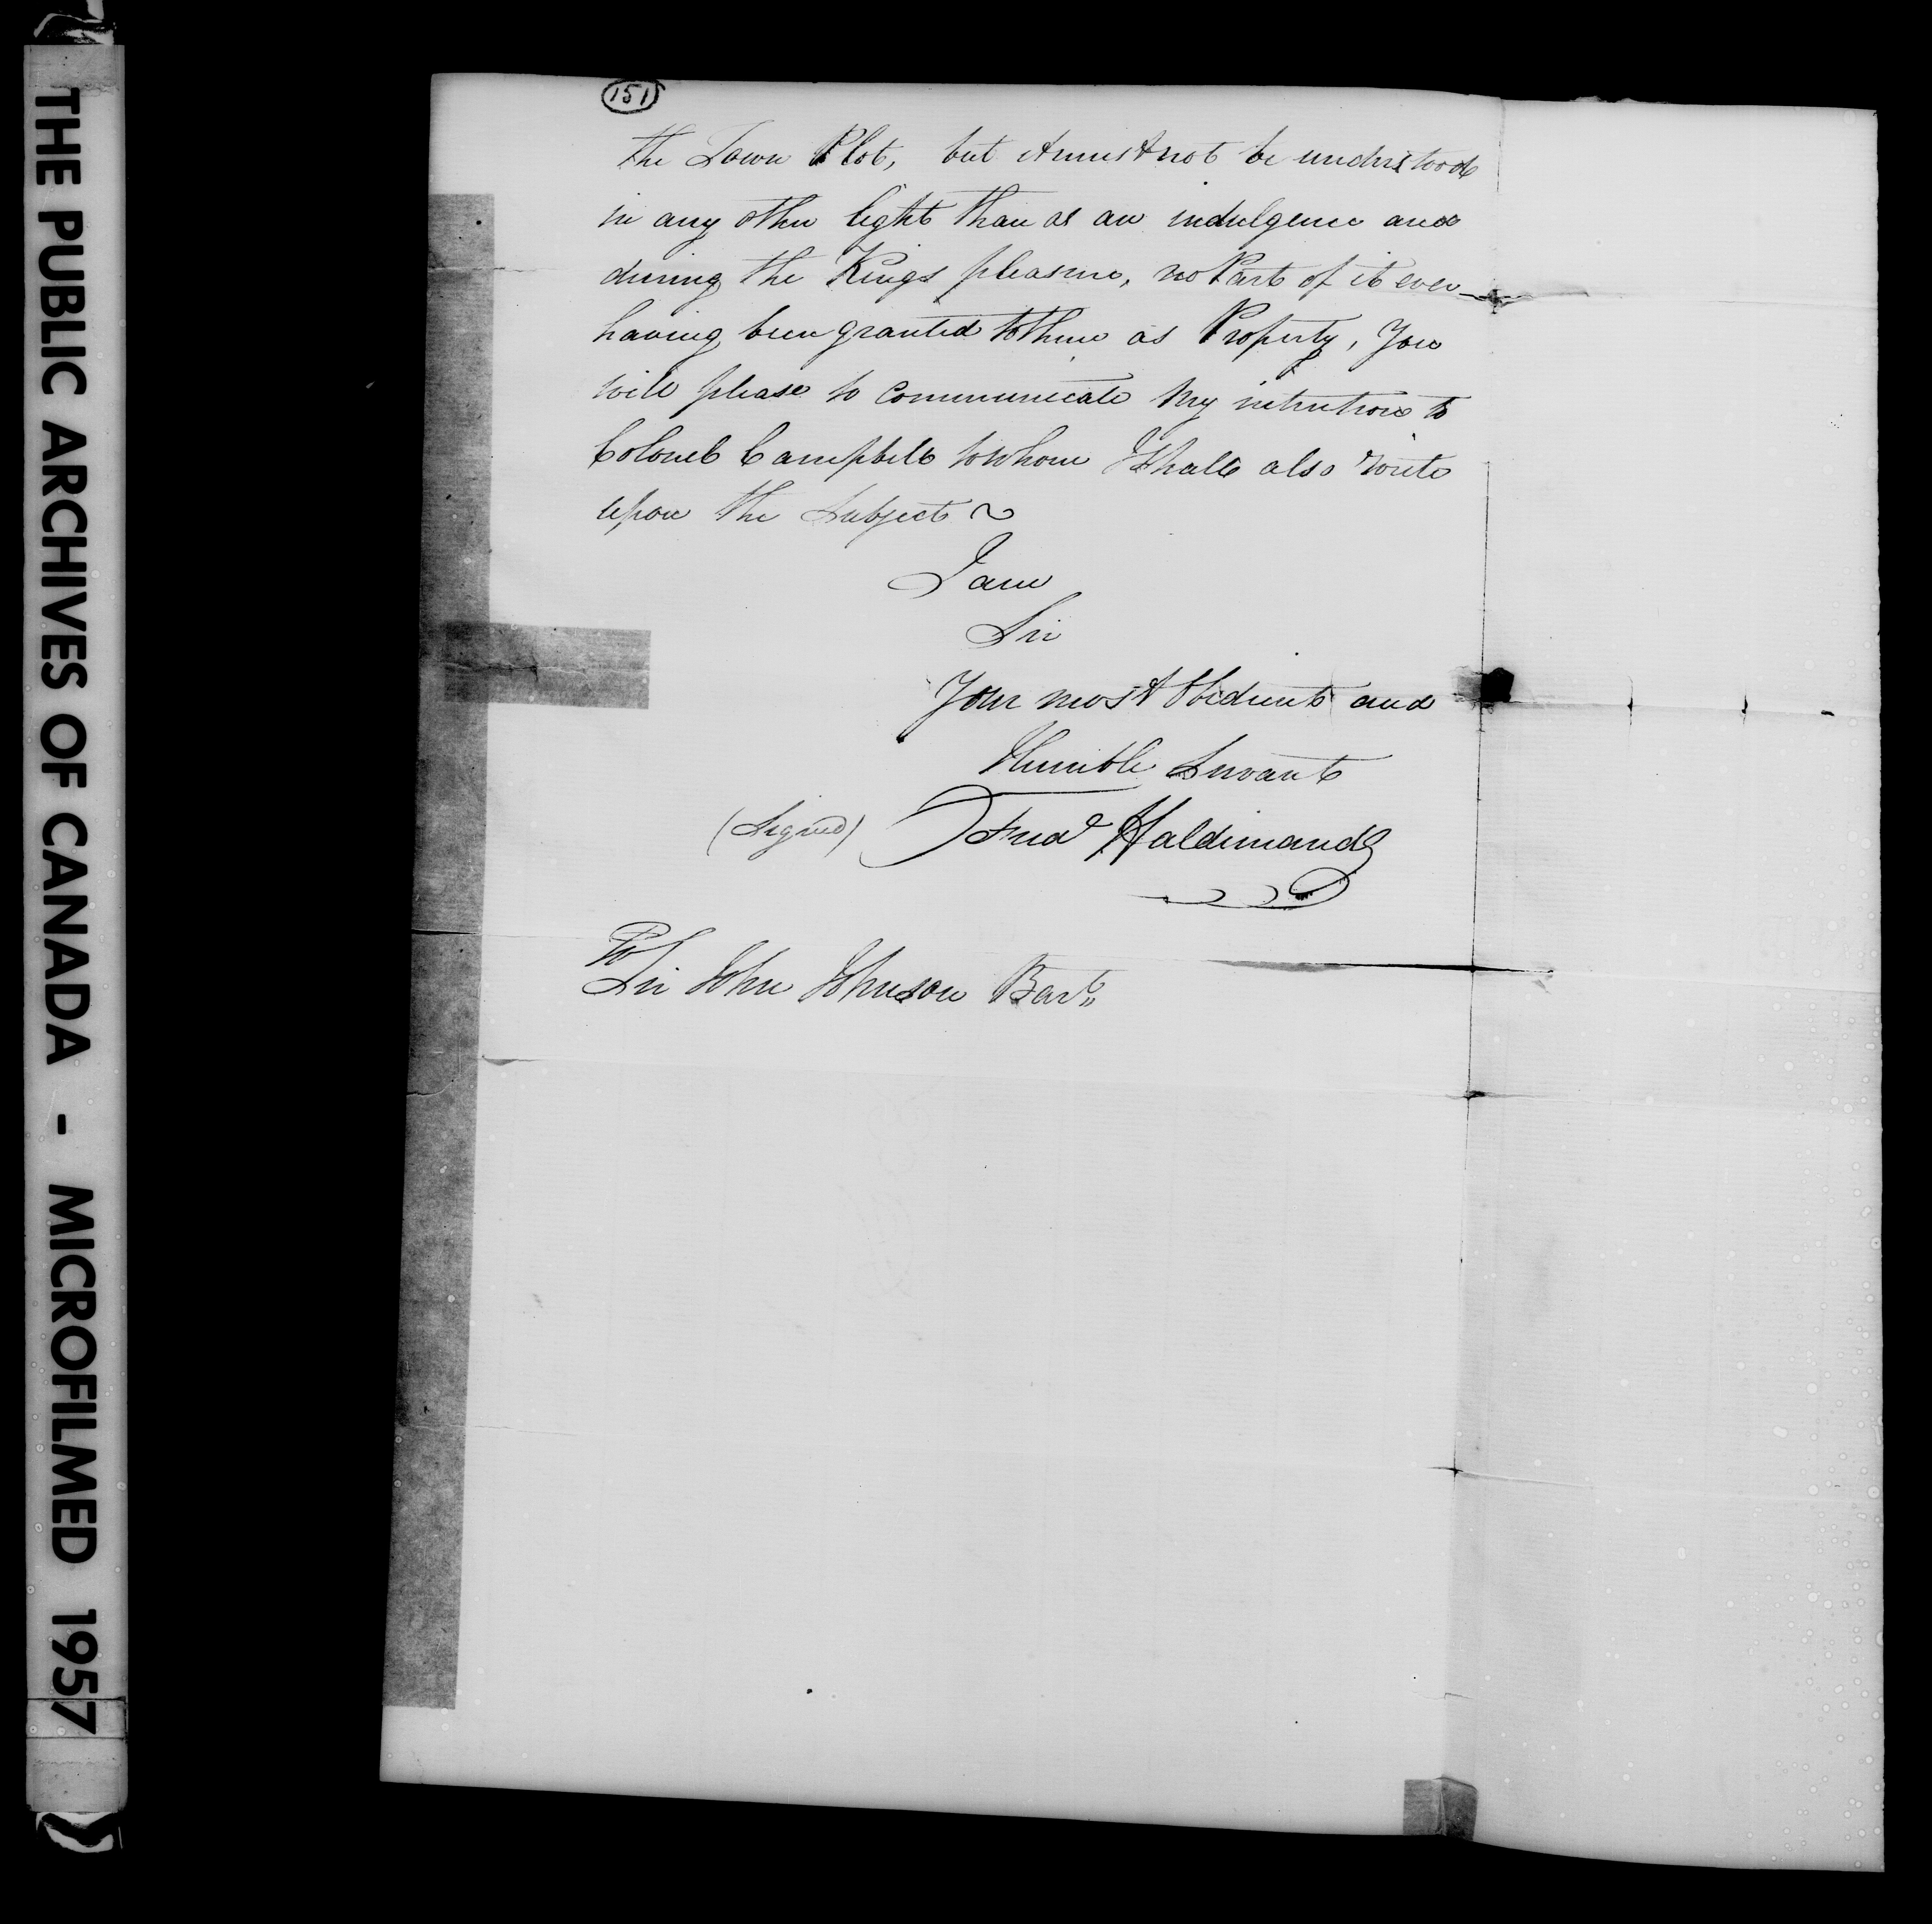 THE PUBLIC ARCHIVES OF CANADA - MICROFILMED 1957
151
the Town Plot, but it must not be understood
in any other light than as an indulgence and
during the Kings pleasure, no Part of it ever
having been granted to them as Property, You
will please to Communicate My intentions to
Colonel Campbell to whom I shall also write
upon the Subject ~
I am
Sir
Your most Obedient and
Humble Servant
(Signed) Fred Haldimand
To
Sir John Johnson Bart